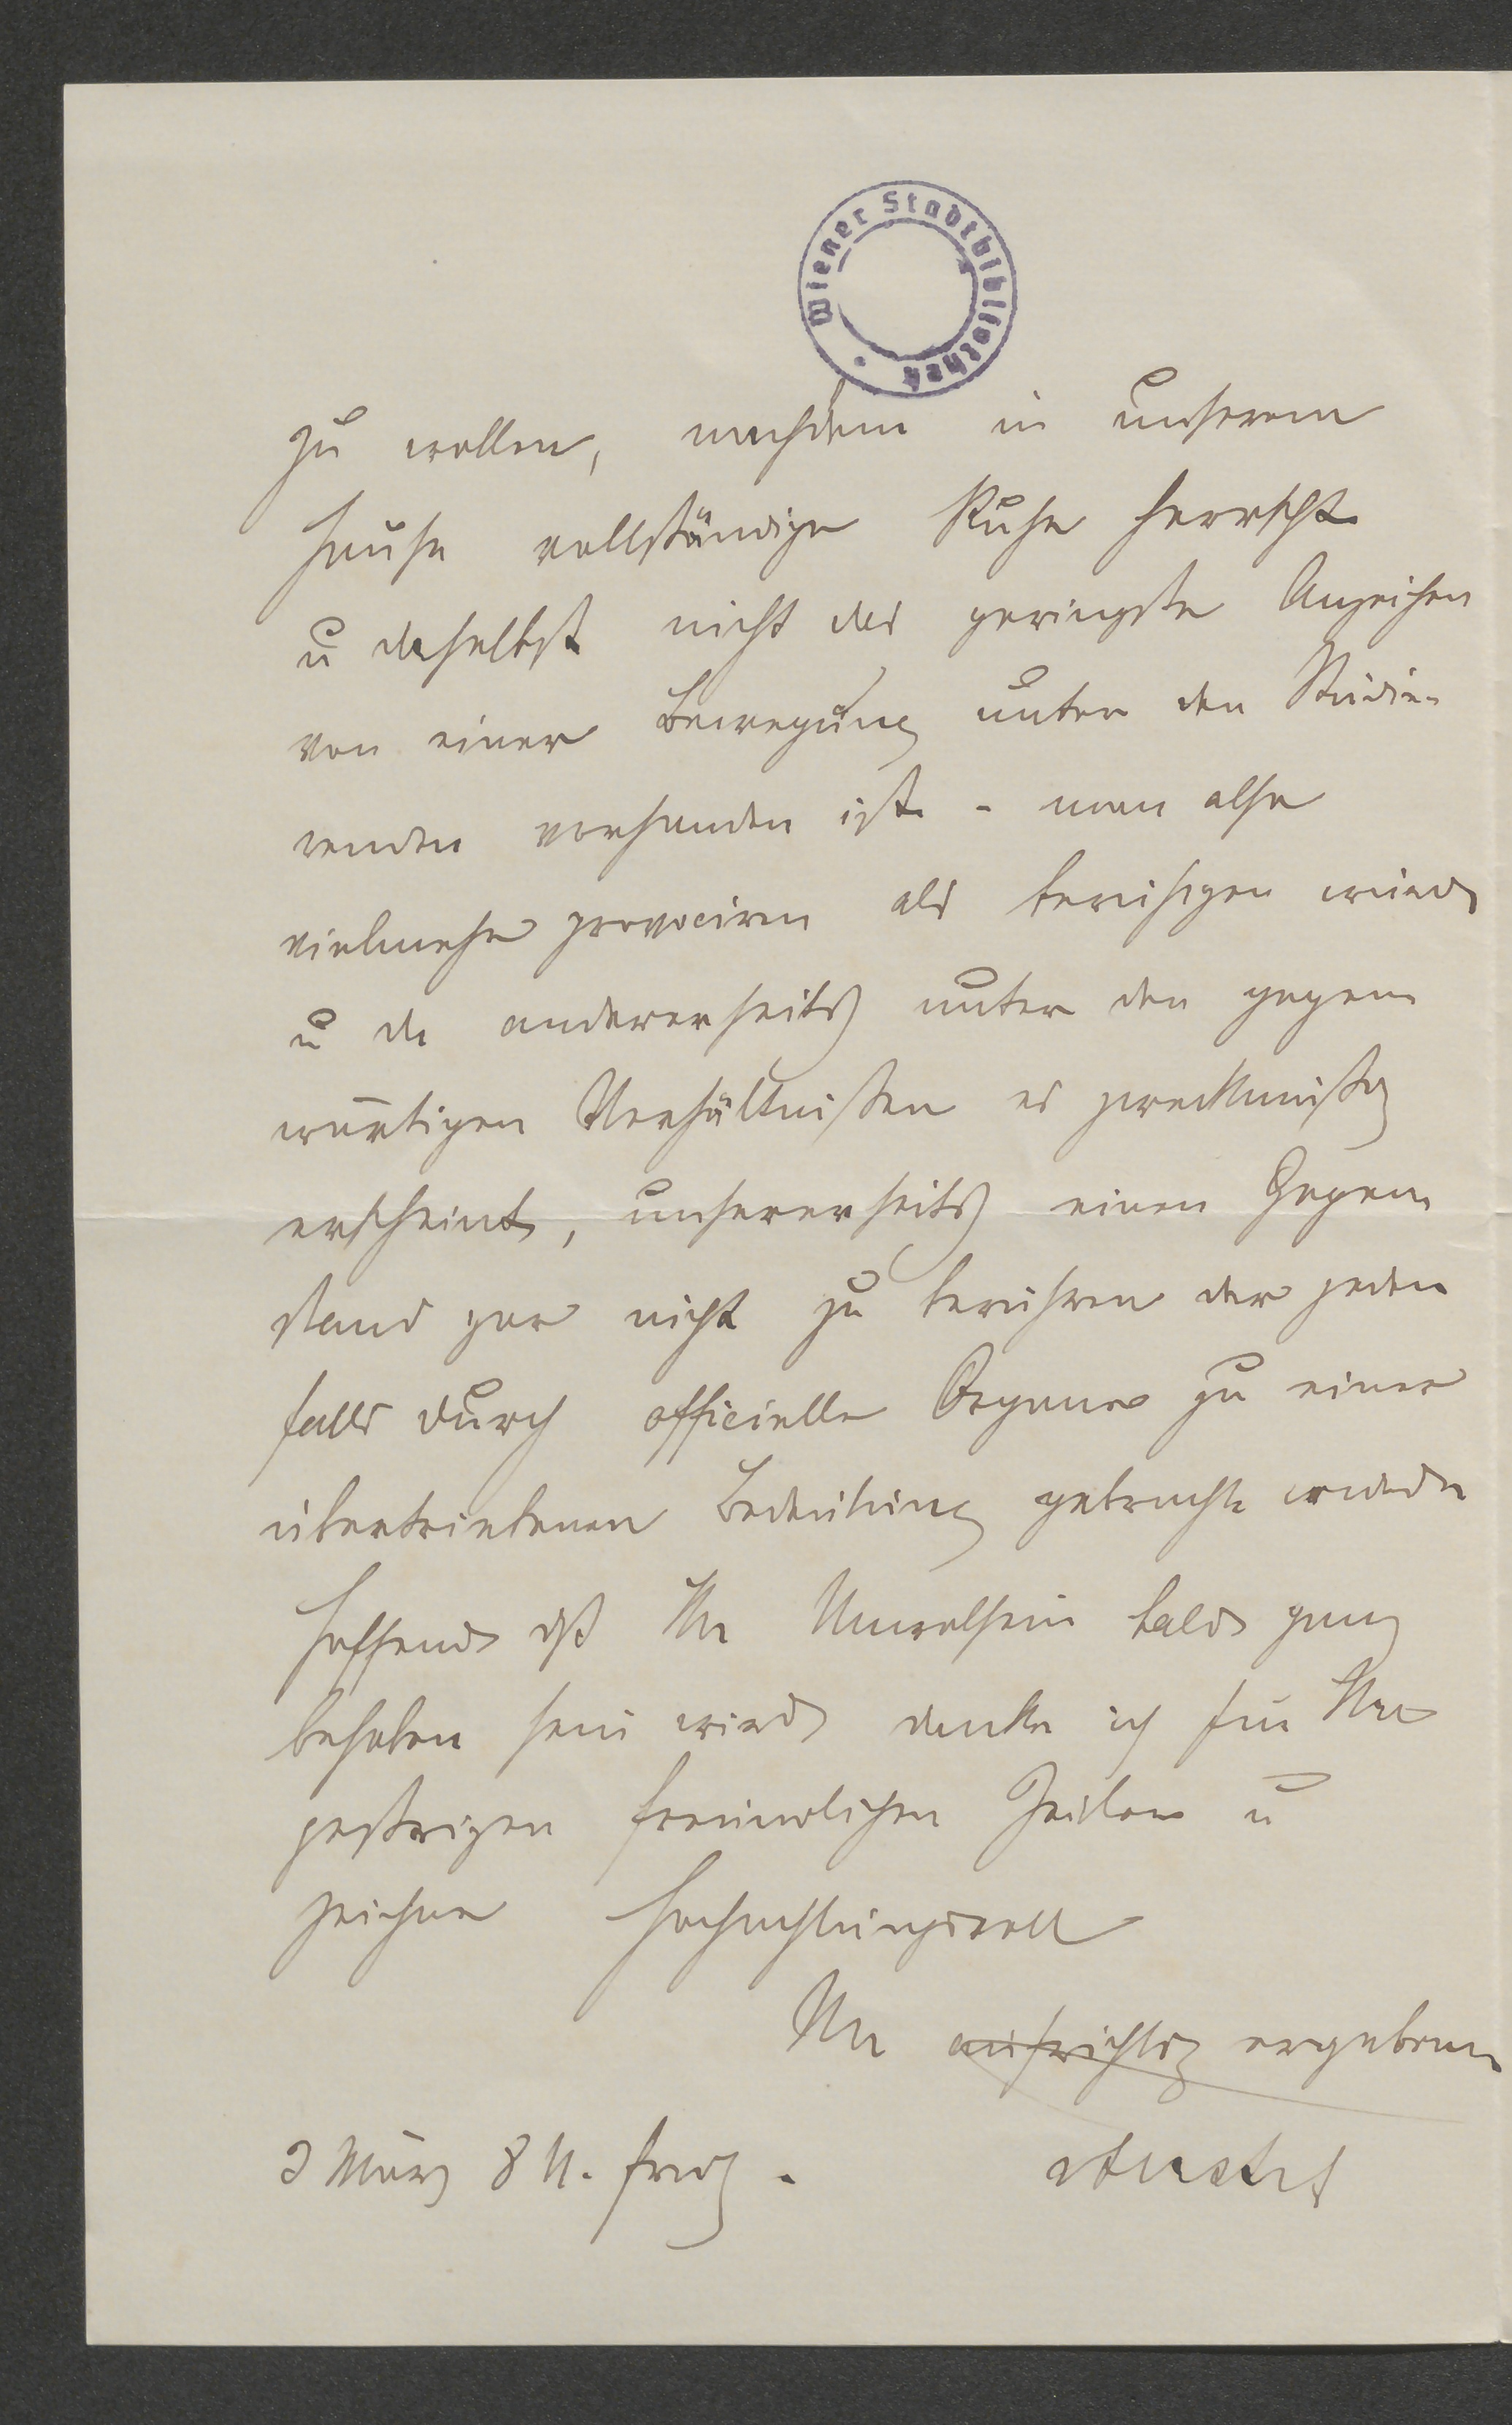 Wiener Stadtbibliothek
zu wollen, nachdem in unserem
Hause vollständige Ruhe herrscht
u daselbst nicht das geringste Anzeichen
von einer Bewegung unter den Studie-
renden vorhanden ist - man also
vielmehr provociren als beruhigen würde
u da andererseits unter den gegen
wärtigen Verhältnißen es zweckmäßig
erscheint, unsererseits einen Gegen
stand gar nicht zu berühren der jeden
falls durch officielle Organe zu einer
übertriebenen Bedeutung gebracht wurde
Hoffend dß Ihr Unwolsein bald ganz
behoben sein wird danke ich für Ihre
gestrigen freundlichen Zeilen u
zeichne hochachtungsvoll
Ihr aufrichtig ergebener
2 März 8 U. früh.